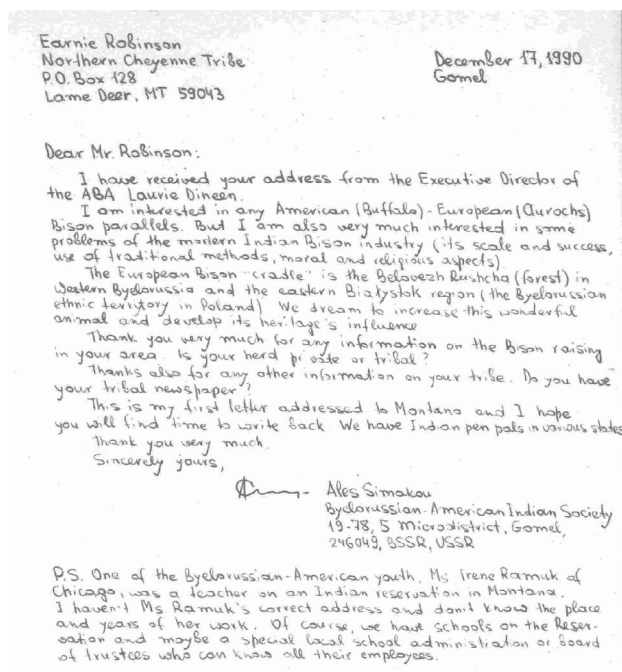 Earnie Robinson
Northern Cheyenne Tribe
P.O. Box 128
Lame Deer, MT 59043
December 17, 1990
Gomel
Dear Mr. Robinson:
I have received your address from the Executive Director of
the ABA Laurie Dineen.
I am interested in any American (Buffalo) - European (Aurochs)
Bison parallels. But I am also very much interested in some
problems of the modern Indian Bison industry (its scale and success,
use of traditional methods, moral and religious aspects).
The European Bison "cradle" is the Belovezh Pushcha (forest) in
Western Byelorussia and the eastern Białystok region (the Byelorussian
ethnic territory in Poland). We dream to increase this wonderful
animal and develop its heritage's influence
Thank you very much for any information on the Bison raising
in your area. Is your herd private or tribal?
Thanks also for any other information on your tribe. Do you have
your tribal newspaper?
This is my first letter addressed to Montana and I hope
you will find time to write back. We have Indian pen pals in various states
Thank you very much.
Sincerely yours,
Ales Simakou
Byelorussian-American Indian Society
19-78, 5 Microdistrict, Gomel,
246049, BSSR, USSR
P.S. One of the Byelorussian-American youth, Ms Irene Ramuk of
Chicago, was a teacher on an Indian reservation in Montana.
I haven't Ms Ramuk's correct address and don't know the place
and years of her work. Of course, we have schools on the Reser-
vation and maybe a special local school administration or board
of trustees who can know all their employees.